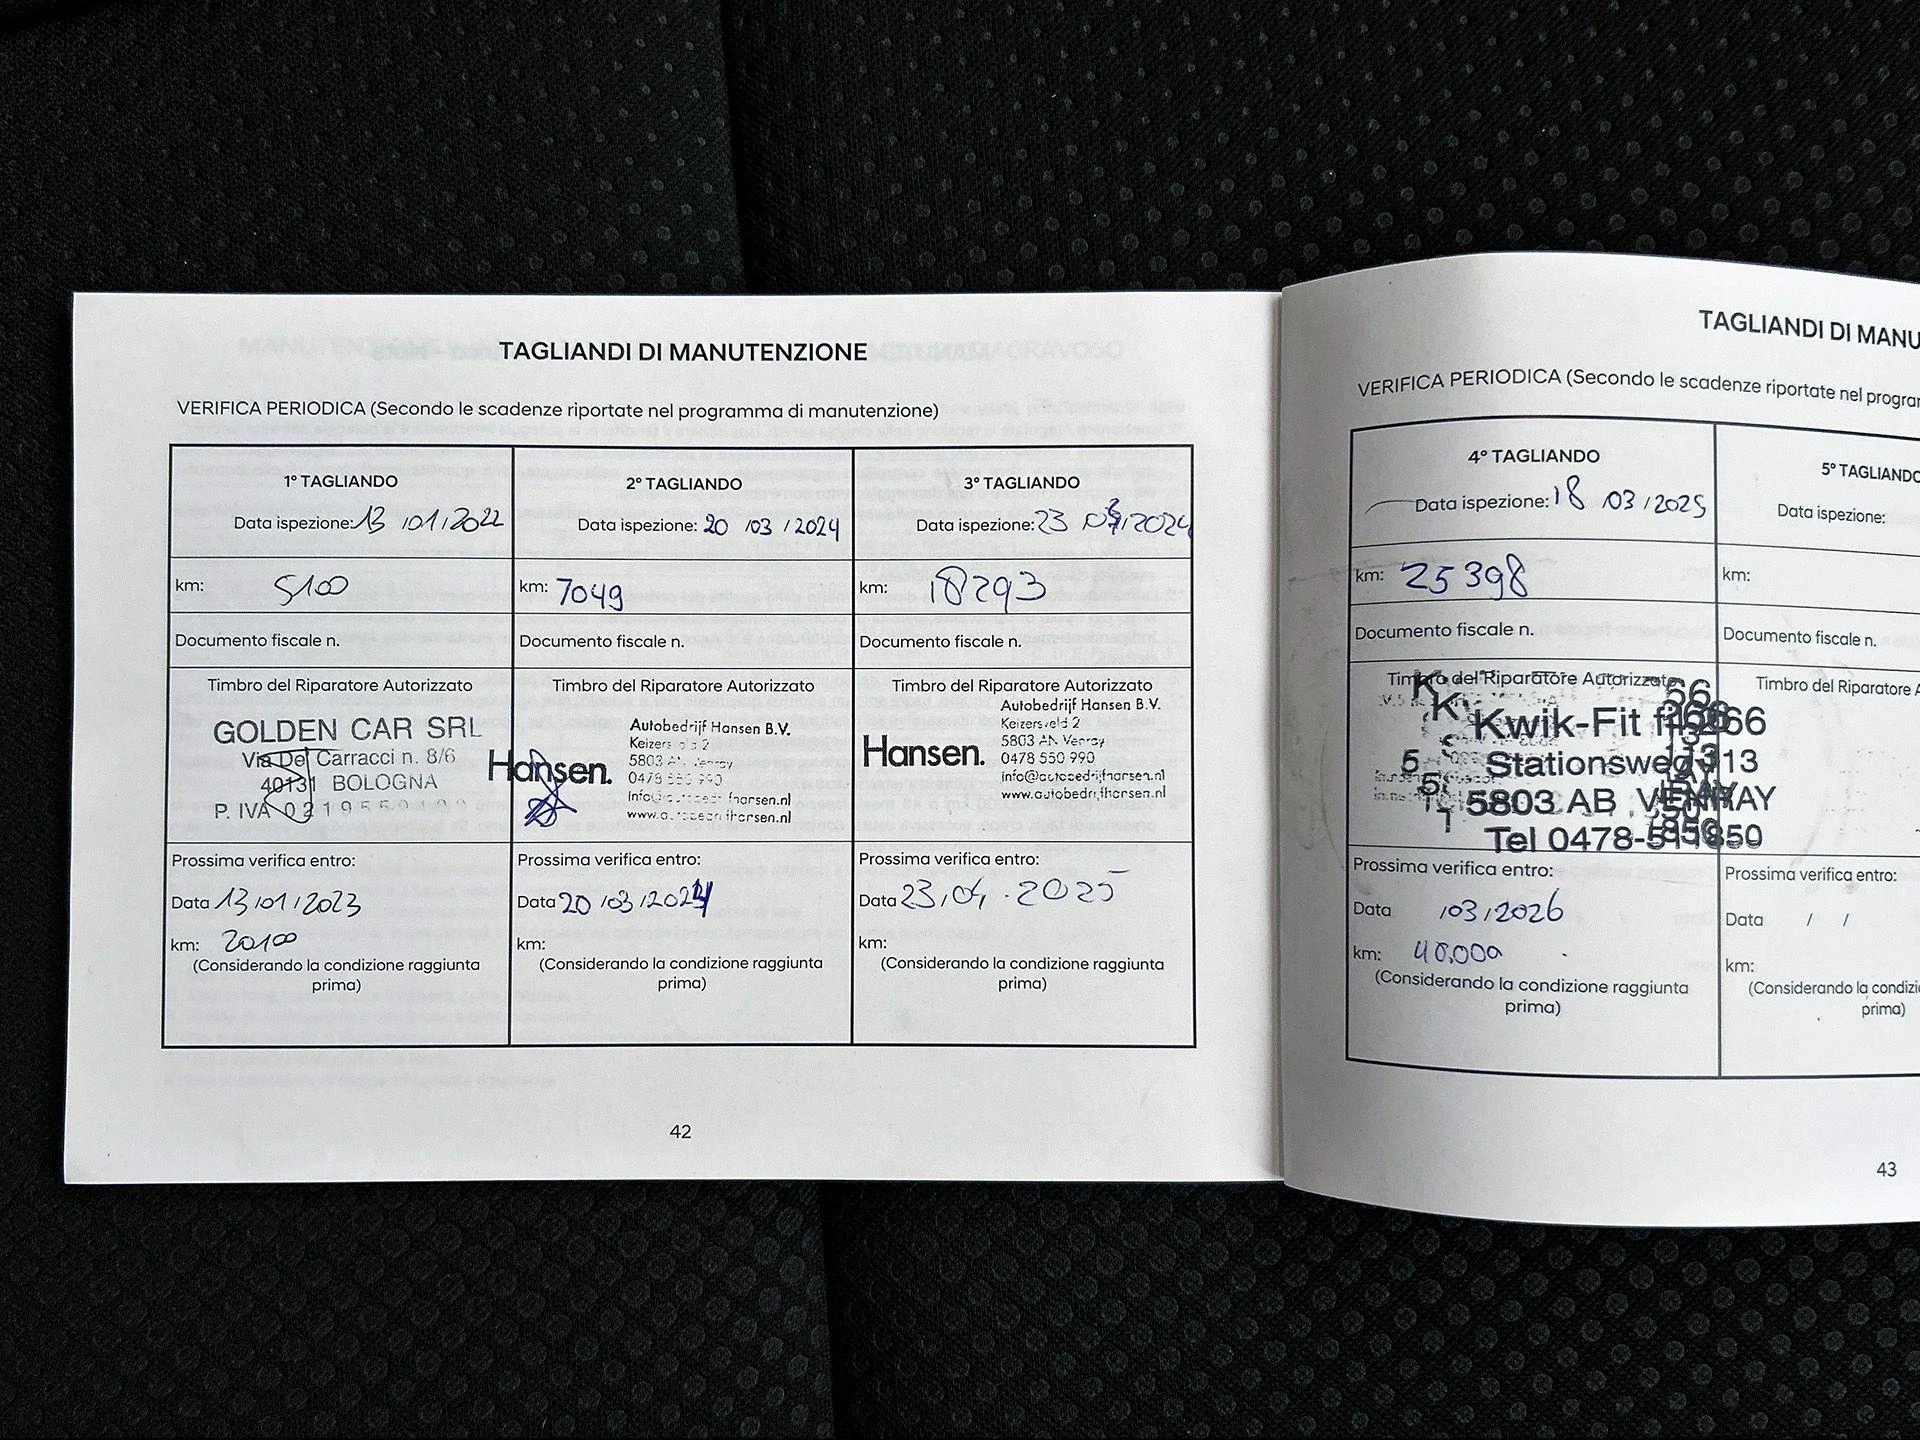 TAGLIANDI DI MANUTENZIONE
VERIFICA PERIODICA (Secondo le scadenze riportate nel programma di manutenzione)
1° TAGLIANDO
Data ispezione: 13/01/2022
km: 5100
Documento fiscale n.
Timbro del Riparatore Autorizzato
GOLDEN CAR SRL
Via Del Carracci n. 8/6
40131 BOLOGNA
P. IVA
Prossima verifica entro:
Data 13/01/2023
km: 20100
(Considerando la condizione raggiunta
prima)
2° TAGLIANDO
Data ispezione: 20/03/2024
km: 7049
Documento fiscale n.
Timbro del Riparatore Autorizzato
Hansen.
Autobedrijf Hansen B.V.
Keizersveld 2
5803 AN Venray
0478 550 990
info@autobedrijfhansen.nl
www.autobedrijfhansen.nl
Prossima verifica entro:
Data 20/03/
km:
(Considerando la condizione raggiunta
prima)
3° TAGLIANDO
Data ispezione: 23 /2024
km: 18293
Documento fiscale n.
Timbro del Riparatore Autorizzato
Hansen.
Autobedrijf Hansen B.V.
Keizersveld 2
5803 AN Venray
0478 550 990
info@autobedrijfhansen.nl
www.autobedrijfhansen.nl
Prossima verifica entro:
Data 23/04.2025
km:
(Considerando la condizione raggiunta
prima)
42
TAGLIANDI DI MANU
VERIFICA PERIODICA (Secondo le scadenze riportate nel progra
4° TAGLIANDO
Data ispezione: 18/03/2025
km: 25398
Documento fiscale n.
Timbro del Riparatore Autorizzato
Kwik-Fit
Stationsweg 113
5803 AB VENRAY
Tel 0478-511850
Prossima verifica entro:
Data /03/2026
km: 40.000
(Considerando la condizione raggiunta
prima)
5° TAGLIANDO
Data ispezione:
km:
Documento fiscale n.
Timbro del Riparatore A
Prossima verifica entro:
Data / /
km:
(Considerando la condizi
prima)
43